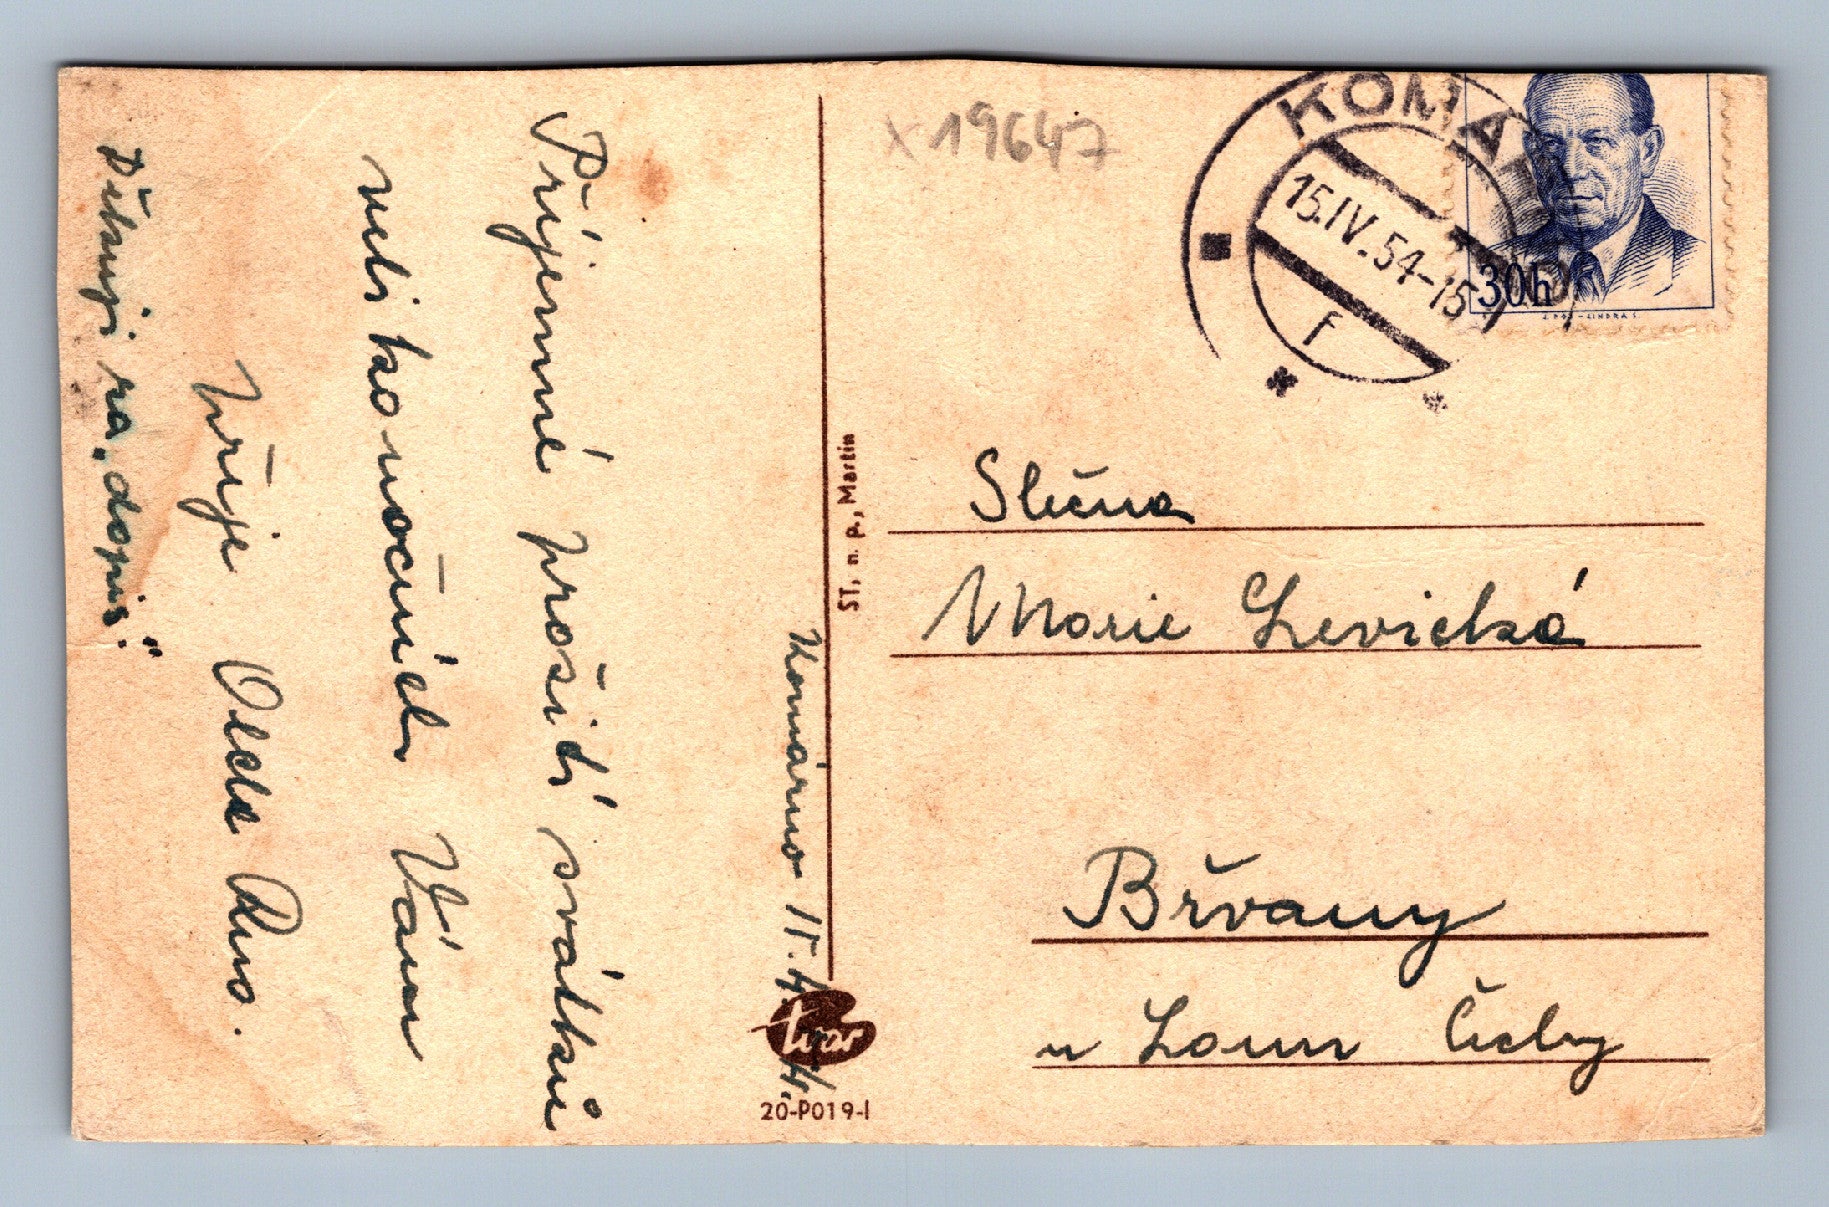 Komárno 15.4.54.
Příjemné prožití svátků
velikonočních Vám
přeje Olda Run.
Děkuji za „dopis".
X19647
KOMÁR
15.IV.54-15
f
30h
ST, n. p., Martin
Slečna
Marie Levická
Břvany
u Loun Čechy
tvar
20-P019-I